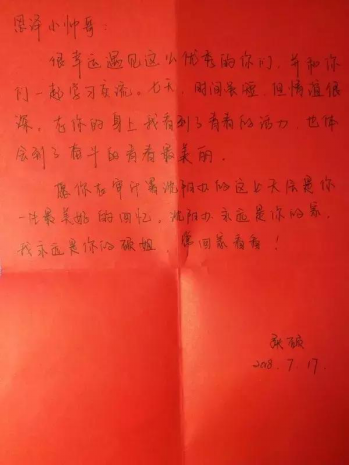 梁泽小帅哥：
很幸运遇见这么优秀的你们，并和你
们一起学习交流。七天，时间虽短，但情谊很
深，在你的身上我看到了青春的活力，也体
会到了奋斗的青春最美丽。
愿你在审计署沈阳办的这七天会是你
一生最美好的回忆，沈阳办永远是你的家，
我永远是你的硕姐，常回家看看！
硕
2018.7.17.